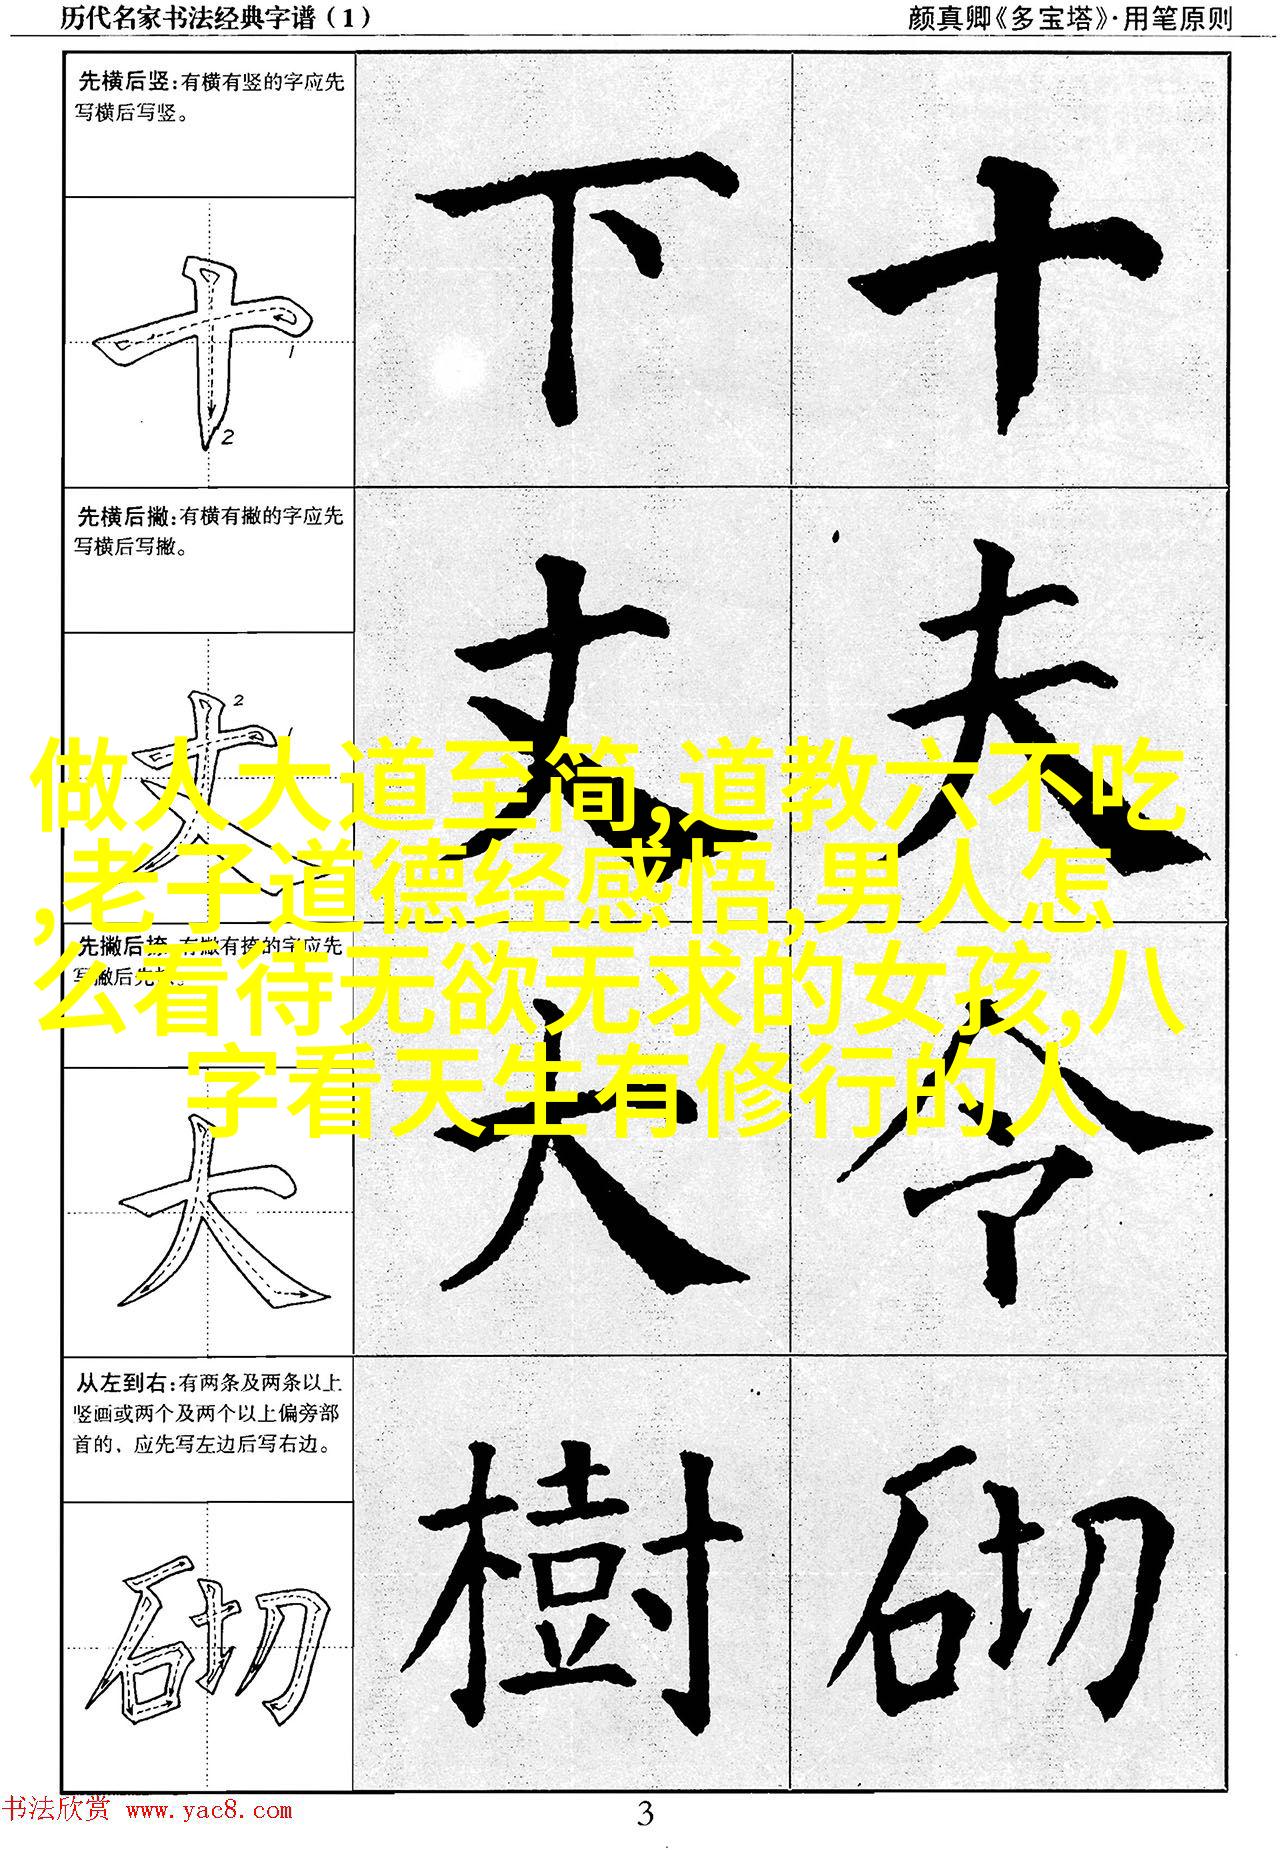 历代名家书法经典字谱（1）
颜真卿《多宝塔》·用笔原则
先横后竖：有横有竖的字应先
写横后写竖。
下 十
十
1
2
先横后撇：有横有撇的字应先
写横后写撇。
丈 夫
丈
2
做人大道至简,道教六不吃
,老子道德经感悟,男人怎
么看待无欲无求的女孩,八
字看天生有修行的人
先撇后捺：有撇有捺的字应先
写撇后
大 令
大
从左到右：有两条及两条以上
竖画或两个及两个以上偏旁部
首的，应先写左边后写右边。
樹 砌
砌
书法欣赏 www.yac8.com
3